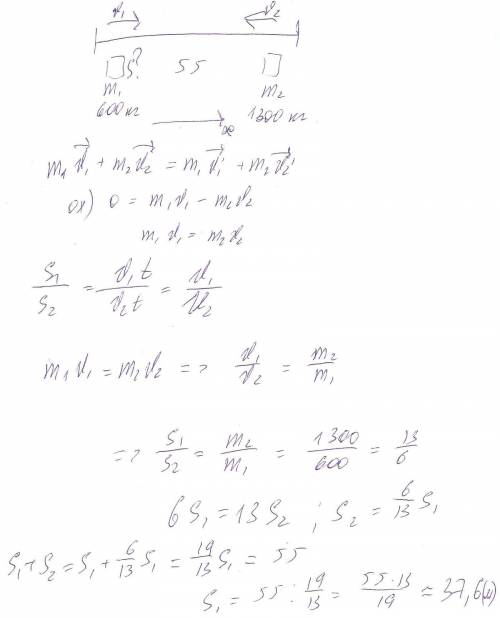 v⃗₁ v⃗₂
S? 55
m₁ m₂
600 кг 1300 кг
x
m₁v⃗₁ + m₂v⃗₂ = m₁v⃗₁' + m₂v⃗₂'
ox) 0 = m₁v₁ - m₂v₂
m₁v₁ = m₂v₂
S₁/S₂ = v₁t/v₂t = v₁/v₂
m₁v₁ = m₂v₂ => v₁/v₂ = m₂/m₁
=> S₁/S₂ = m₂/m₁ = 1300/600 = 13/6
6S₁ = 13S₂ ; S₂ = 6/13 S₁
S₁+S₂ = S₁ + 6/13 S₁ = 19/13 S₁ = 55
S₁ = 55 : 19/13 = 55·13/19 ≈ 37,6(м)